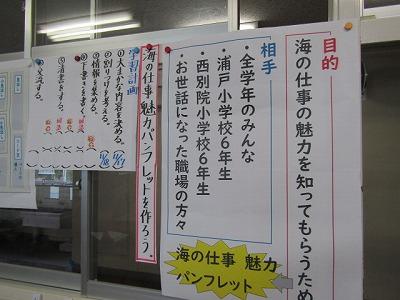 目的
海の仕事の魅力を知ってもらうため
相手
・全学年のみんな
・浦戸小学校6年生
・西別院小学校6年生
お世話になった職場の方々
海の仕事 魅力
パンフレット
海の仕事 魅力パンフレットを作ろう。
学習計画
①大まかな内容を決める。
②割りつけを考える。
③情報を集める。
④下書きを書く。
⑤清書をする。
⑥交流する。